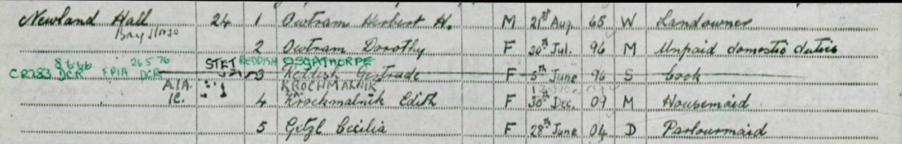 Newland Hall 24 1 Owtram Herbert H. M 21st Aug. 65 W Landowner
Bay Horse
2 Owtram Dorothy F 20th Jul. 96 M Unpaid domestic duties
8666 26576 STET REDDISH OSGATHORPE
CR283 DCR EDIA DCR 3 Reddish Gertrude F 5th June 96 S Cook
A/A. KROCHMALNIK
4 Krochmalnik Edith F 30th Dec. 09 M Housemaid
5 Getzl Cecilia F 28th June 04 D Parlourmaid